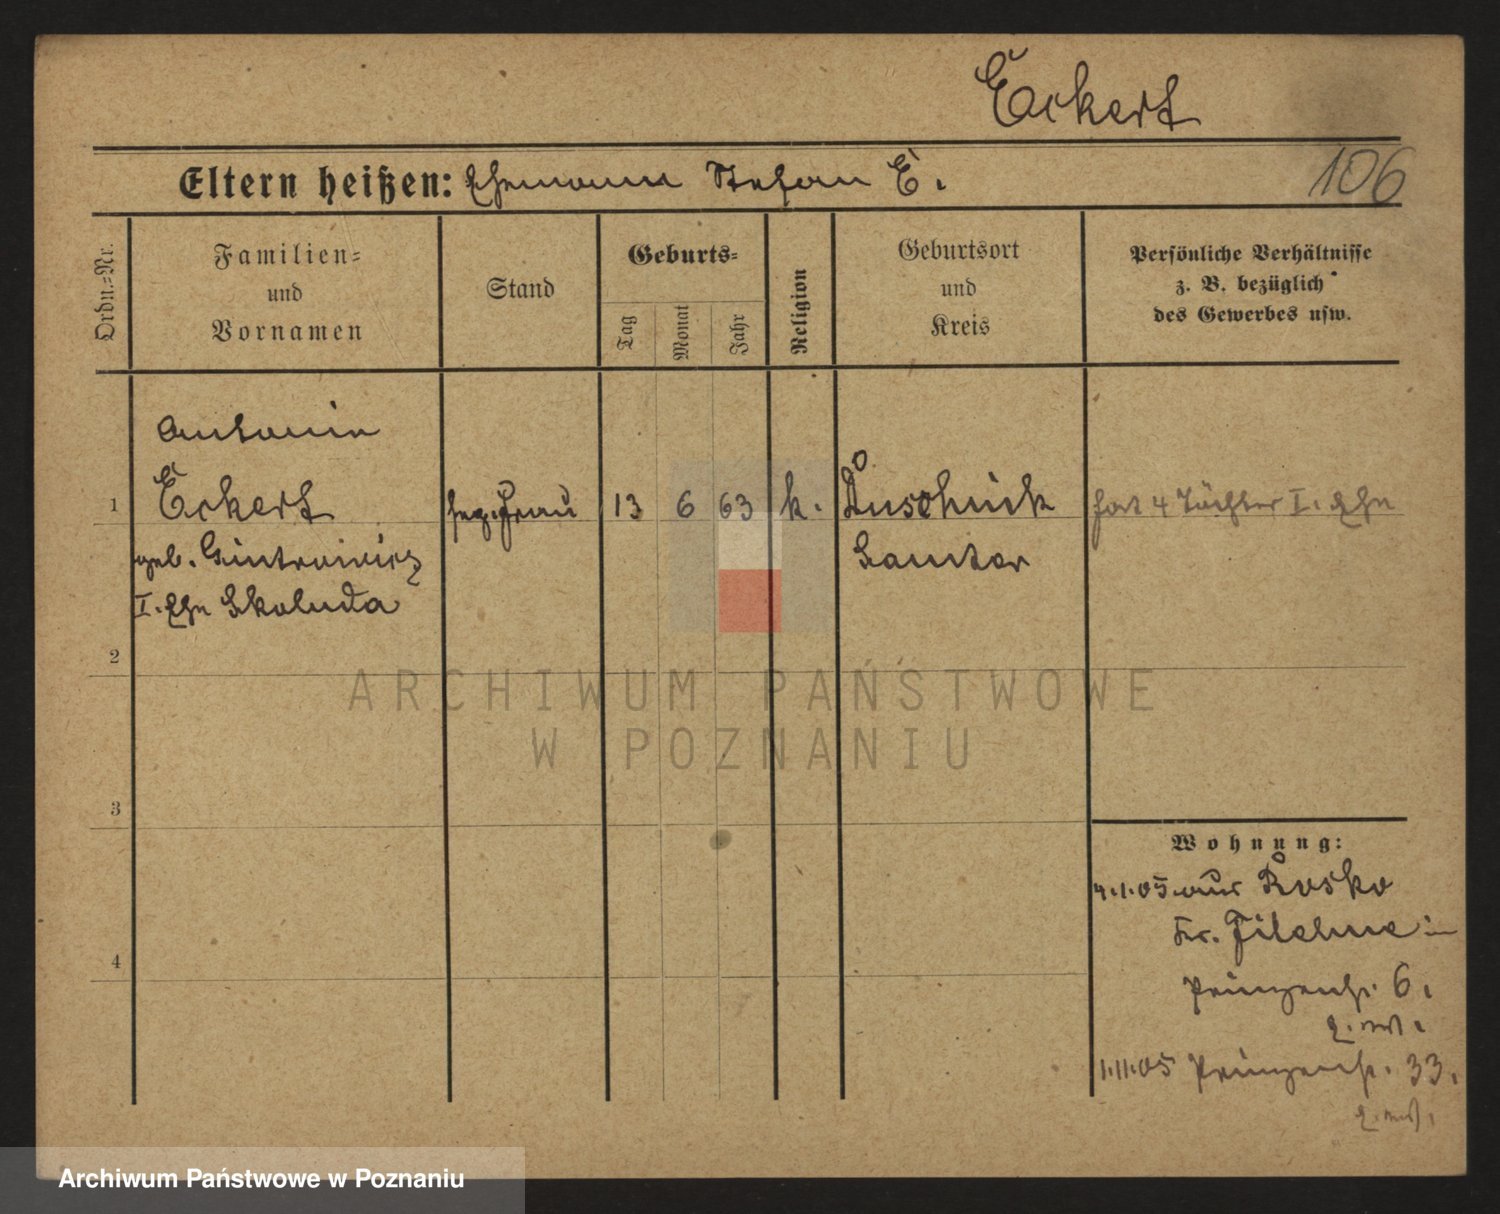 Eckert
106
Eltern heißen: Ehemann Stefan E.
Ordn.=Nr.
Familien=
und
Vornamen
Stand
Geburts=
Tag
Monat
Jahr
Religion
Geburtsort
und
Kreis
Persönliche Verhältnisse
z. B. bezüglich
des Gewerbes usw.
Antonin
1 Eckert Frau 13 6 63 k. Duschnik hat 4 Töchter I. Ehe
geb. Samter
I. Ehe Skaluda
2
3
4
Wohnung:
4.1.05 aus Rosko
Kr. Filehne in
Prinzenstr. 6.
1.11.05 Prinzenstr. 33.
ARCHIWUM PAŃSTWOWE
W POZNANIU
Archiwum Państwowe w Poznaniu